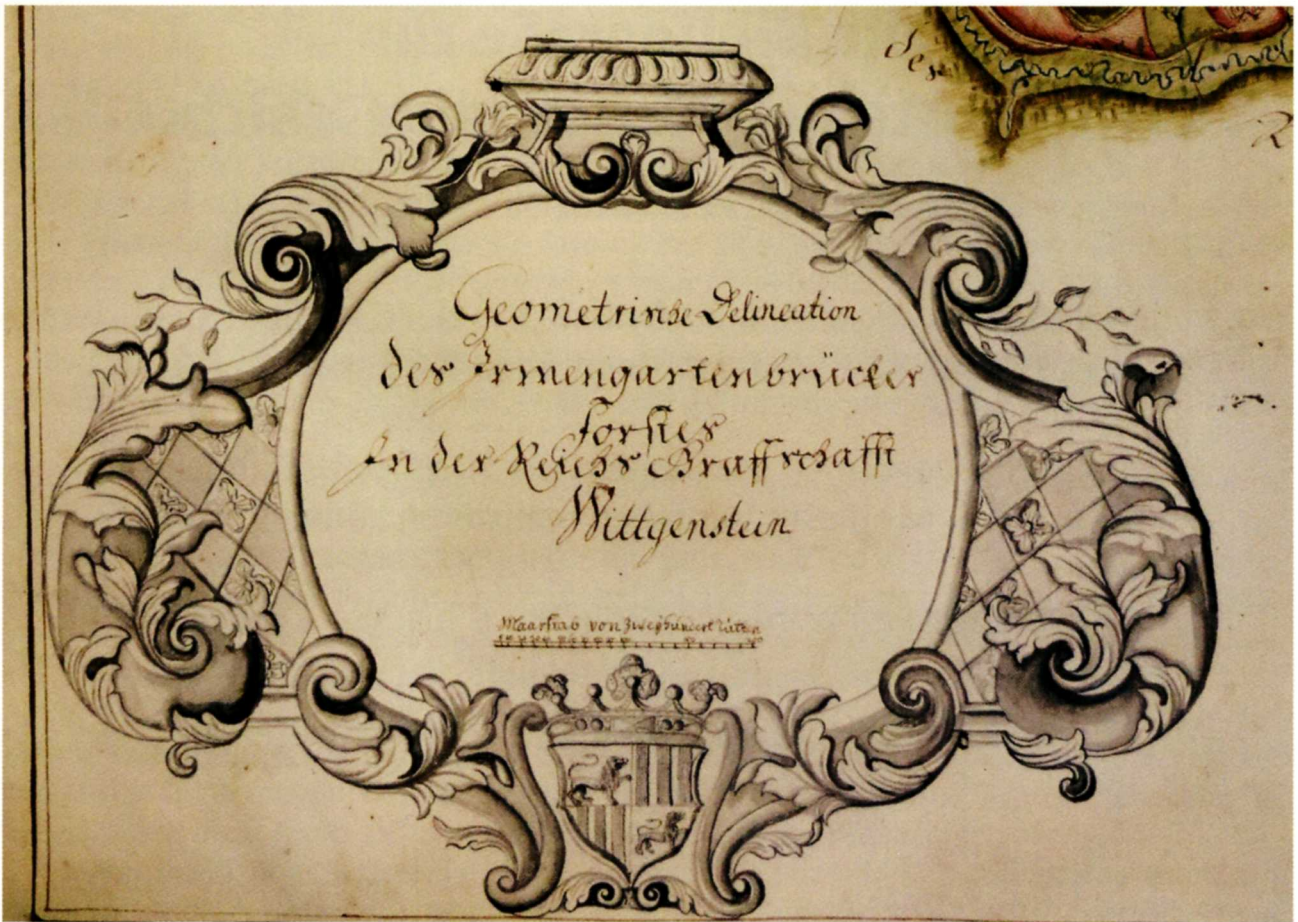 des
R
Geometrische Delineation
des Irmengartenbrücker
Forstes
In der Reichs Graffschafft
Wittgenstein
Maasstab von Zweyhundert Ruten